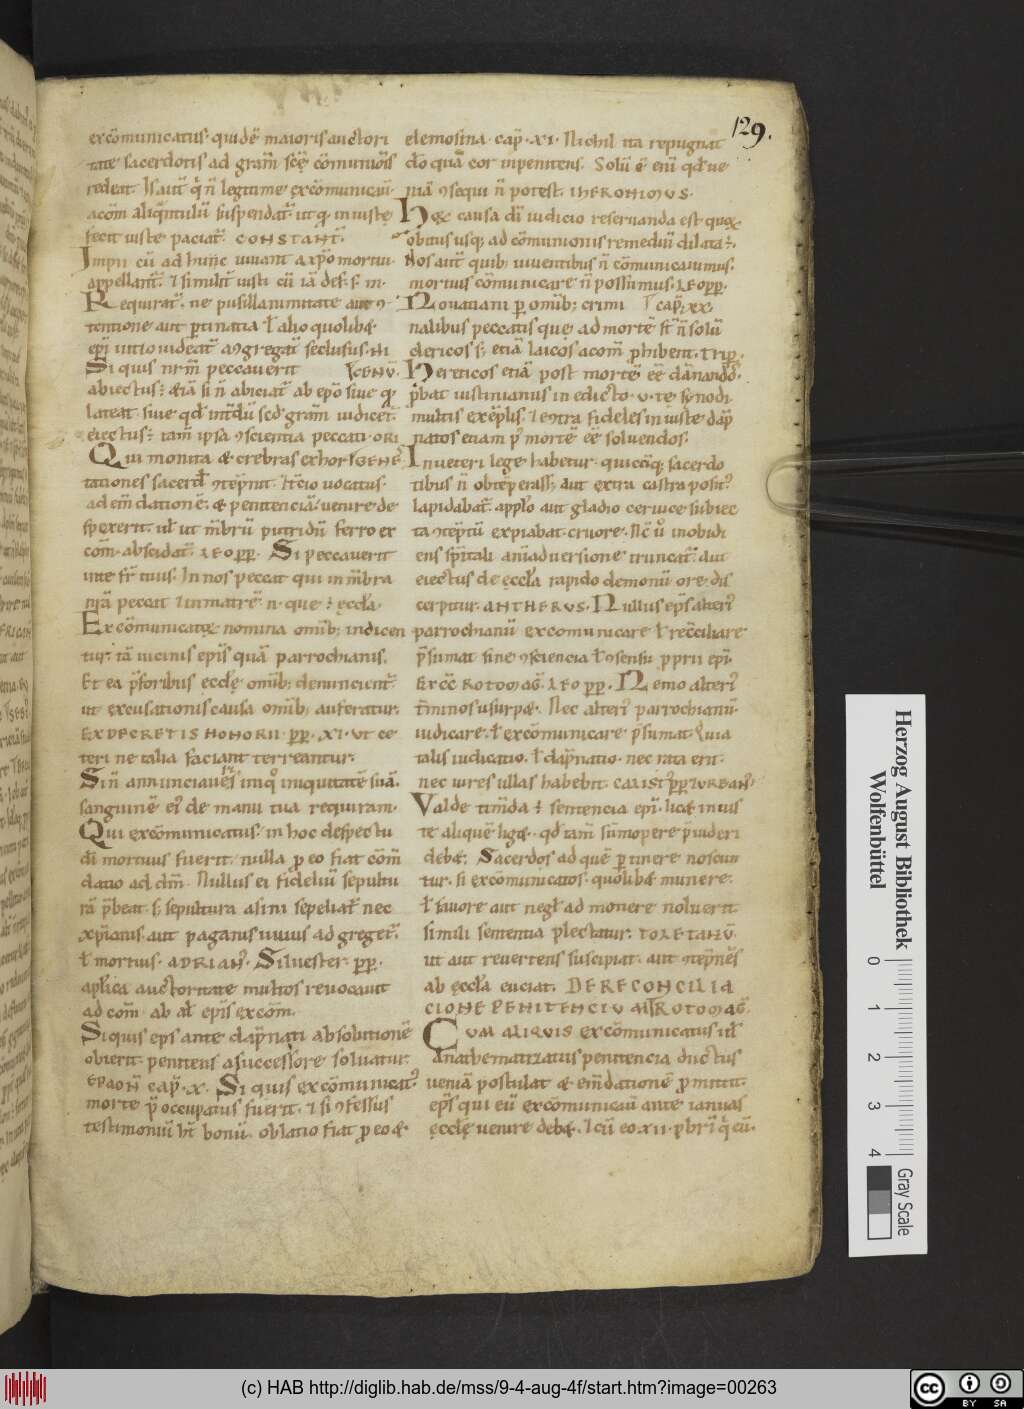 129.
excōmunicatus. quidē maioris auctori
tate sacerdotis ad gram̄ scē cōmunionis
redeat. Is aut̄ q̄ n̄ legitime excōmunicaū
acōm aliq̄ntulū suspendat̄ ut q iniuste
fecit iuste paciat̄. CONSTANT̄.
Impii cū ad hunc uiuant a xp̄o mortui
appellant̄. ⁊ similit̄ iusti cū iā def. s. in.
Requirat̄. ne pusillanimitate aut ꝯ
tentione aut ꝑtinatia ł alio quolibꝫ
ep̄i uitio uideat̄ a ꝯgregat̄ seclusus. Ni
Si quis nr̄m peccauerit CENŪ.
abiectus: &iā si n̄ abiciat̄ ab ep̄o siue q
lateat. siue qd̄ int̄dū scd̄ gram̄ iudicet̄.
eiectus: tam̄ ipsa ꝯscientia peccati. ORI
Qui monita & crebras exhor GENE.
tationes sacerd̄ ꝯtēpnit. uocatus.
ad em̄dationē & penitenciā uenire de
spexerit. uł ut m̄brū putridū ferro ex
cōm abscidat̄. LEO PP. Si peccauerit
inte fr̄ tuus. In nos peccat qui in m̄bra
nr̄a peccat ⁊ in matrē n. que ÷ ęccła.
Excōmunicatoꝝ nomina omībꝫ indicen
tur. tā uicinis ep̄is quā parrochianis.
Et ea p̄foribus ecclę omībꝫ denuncient̄.
ut excusationis causa omībꝫ auferatur.
EX DECRETIS HONORII PP. XI. Ut ce
teri ne talia faciant terreantur.
Si n̄ annunciaueris iniquo iniquitatē suā.
sanguinē ei de manu tua requiram.
Qui excōmunicatus in hoc despectu
dī mortuus fuerit nulla p eo fiat cōm̄
datio ad dm̄. Nullus ei fideliū sepultu
rā p̄beat. s; sepultura asini sepeliat̄ nec
xp̄ianis. aut paganis uiuus ad greget̄.
ł mortuus. ADRIAN̄. Siluester. pp.
apłica auctoritate multos reuocauit
ad cōm̄. ab ał ep̄is excōm̄.
Si quis eps ante dāpnati absolutionē
obierit. penitens a successore soluatur.
EPAON̄ CAP̄. X. Si quis excōmunicat̄
morte p̄occupatus fuerit. ⁊ si ꝯfessus
testimoniū ht̄ bonū. oblatio fiat p eo &
elemosina. cap̄. XI. Nichil ita repugnat
dō quā cor inpenitens. Solū ē enī qd̄ ue
niā ꝯsequi n̄ potest. IHERONIMUS.
Hęc causa dī iudicio reseruanda est quęx
obitus usqꝫ ad cōmunionis remediū dilata÷.
Nos aut̄ quibꝫ uiuentibus n̄ cōmunicauimus.
mortuis cōmunicare n̄ possumus. LEO PP.
Nouatiani ꝑ omībꝫ crimi cap̄. XX.
nalibus peccatis quę ad mortē st̄ n̄ solū
clericos s; etiā laicos acōm̄ phibent. Trip̄.
Hereticos etiā post mortē eē dānandos
p̄bat iustinianus in edicto. u. te synodi
multis exēplis. ⁊ ecntra fideles iniuste dap̄
natos etiam p mortē eē soluendos.
In ueteri lege habetur. quicūqꝫ sacerdo
tibus n̄ obtēperass; aut extra castra posit̄
lapidabat̄. apposito aut gladio ceruice subiec
ta ꝯtēptū expiabat cruore. Nc̄ ū inobidi
ens sp̄itali anīaduersione truncat̄. aut
eiectus de ęccła rapido demonū ore. dis
cerpitur. ANTHERUS. Nullus ep̄s alteri
parrochianū excomunicare ł recc̄iliare
p̄sumat sine ꝯsciencia ł ꝯsensu pprii ep̄i.
EX CC̄ ROTOMAG̅. LEO PP. Nemo alteri
t̄minos usurpꝫ. Nec alteri parrochianū
iudicare. ł excōmunicare p̄sumat. Quia
talis iudicatio. ł dāpnatio. nec rata erit.
nec uires ullas habebit. CALIST PP URBAN̄.
Valde tim̄da ÷ sentencia ep̄i. licꝫ inius
te aliquē ligꝫ. qd̄ tam̄ sūmopere puideri
debꝫ. Sacerdos ad quē ptinere noscun
tur. si excōmunicatos. quolibꝫ munere.
ł fauore aut negł admonere noluerit
simili sententia plectatur. TOLETANŪ.
ut aut reuertens suscipiat. aut ꝯtēpnēs
ab ęccła euciat. DE RECONCILIA
CIONE PENITENCIUM ROTOMAG̅.
CUM ALIQUIS excōmunicatus uł
anathematizatus penitencia ductus
ueniā postulat & em̄dationē pmittit.
ep̄s qui eū excōmunicaū ante ianuas
ęcclę uenire debꝫ. ⁊ cū eo XII. pbri q eū.
Herzog August Bibliothek
Wolfenbüttel
0 1 2 3 4
Gray Scale
(c) HAB http://diglib.hab.de/mss/9-4-aug-4f/start.htm?image=00263
cc BY SA